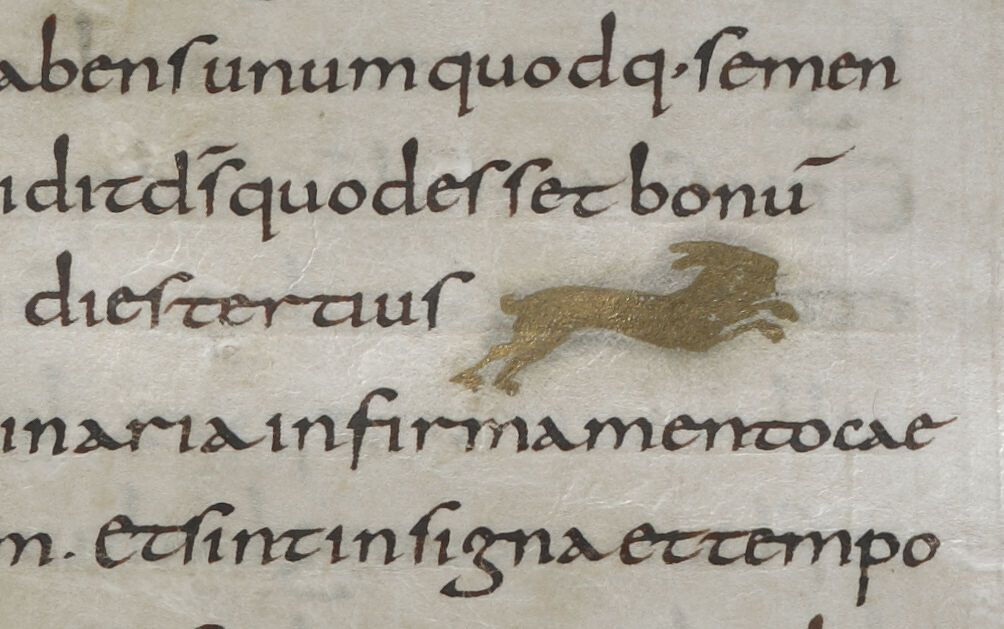 abens unumquodq· semen
idit ds̄ quod esset bonū
dies tertius
inaria in firmamento cae
m. Et sint in signa et tempo